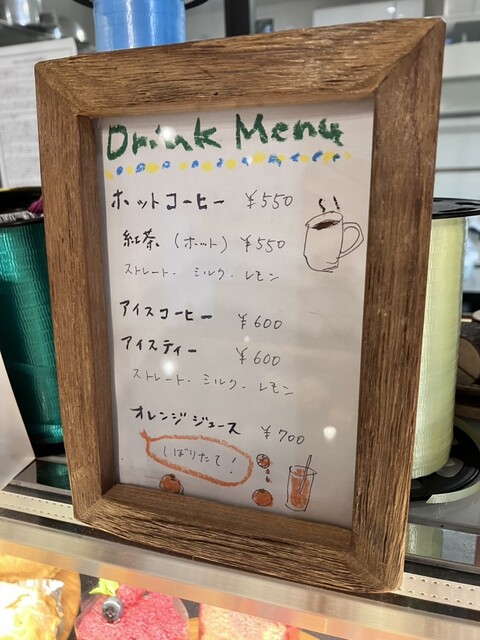 Drink Menu
ホットコーヒー ¥550
紅茶（ホット） ¥550
ストレート・ミルク・レモン
アイスコーヒー ¥600
アイスティー ¥600
ストレート・ミルク・レモン
オレンジジュース ¥700
しぼりたて！